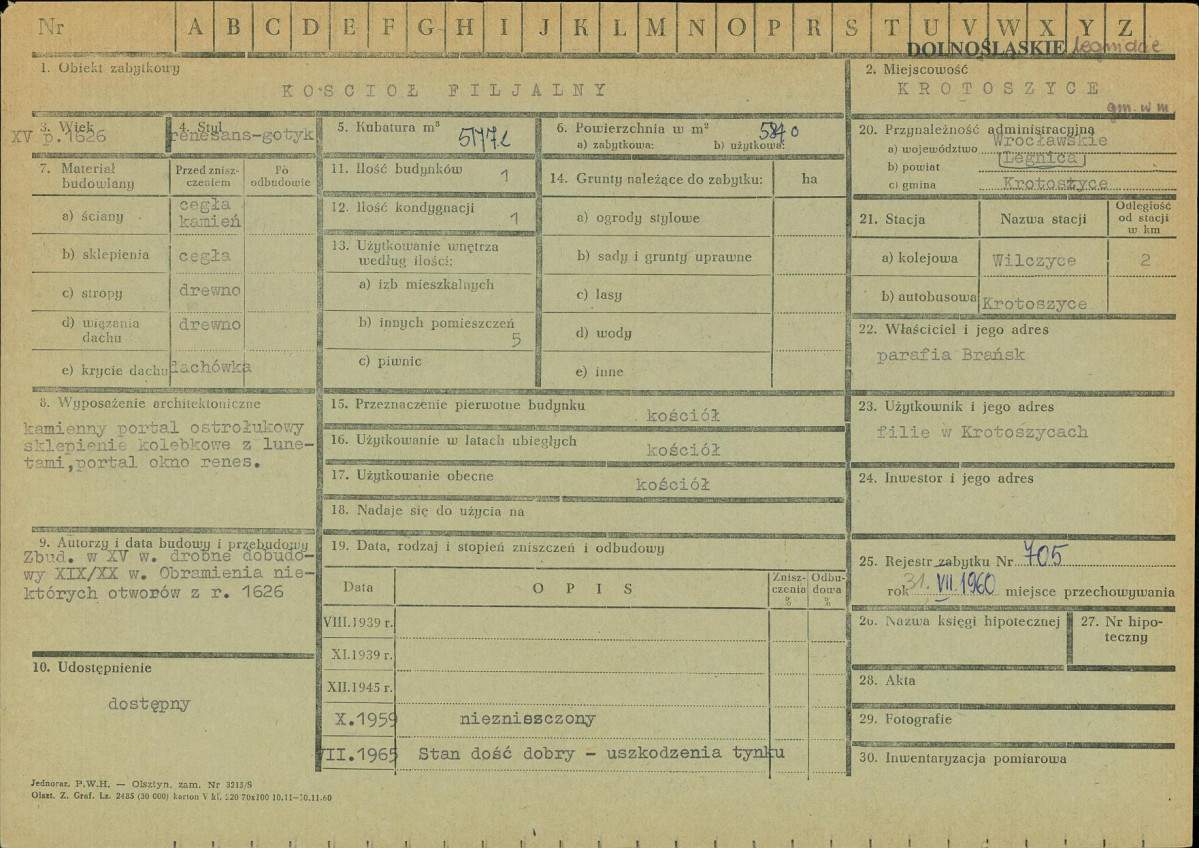 Nr A B C D E F G H I J K L M N O P R S T U V W X Y Z
DOLNOŚLĄSKIE
1. Obiekt zabytkowy
KOŚCIOŁ FILJALNY
2. Miejscowość
KROTOSZYCE
gm. w m
3. Wiek
XV p.1626
4. Styl
renesans-gotyk
5. Kubatura m³
6. Powierzchnia w m²
a) zabytkowa: b) użytkowa:
20. Przynależność administracyjna
a) województwo Wrocławskie
b) powiat Legnica
c) gmina Krotoszyce
7. Materiał budowlany
Przed zniszczeniem
Po odbudowie
a) ściany cegła kamień
b) sklepienia cegła
c) stropy drewno
d) wiązania dachu drewno
e) krycie dachu dachówka
11. Ilość budynków 1
12. Ilość kondygnacji 1
13. Użytkowanie wnętrza
według ilości:
a) izb mieszkalnych
b) innych pomieszczeń 5
c) piwnic
14. Grunty należące do zabytku: ha
a) ogrody stylowe
b) sady i grunty uprawne
c) lasy
d) wody
e) inne
21. Stacja Nazwa stacji Odległość od stacji w km
a) kolejowa Wilczyce 2
b) autobusowa Krotoszyce
22. Właściciel i jego adres
parafia Brańsk
8. Wyposażenie architektoniczne
kamienny portal ostrołukowy
sklepienie kolebkowe z lune-
tami,portal okno renes.
15. Przeznaczenie pierwotne budynku
kościół
16. Użytkowanie w latach ubiegłych
kościół
17. Użytkowanie obecne
kościół
18. Nadaje się do użycia na
23. Użytkownik i jego adres
filie w Krotoszycach
24. Inwestor i jego adres
9. Autorzy i data budowy i przebudowy
Zbud. w XV w. drobne dobudo-
wy XIX/XX w. Obramienia nie-
których otworów z r. 1626
19. Data, rodzaj i stopień zniszczeń i odbudowy
Data OPIS Zniszczenia % Odbudowa %
VIII.1939 r.
XI.1939 r.
XII.1945 r.
X.1959 niezniszczony
VII.1965 Stan dość dobry - uszkodzenia tynku
25. Rejestr zabytku Nr 705
rok 31. VII. 1960 miejsce przechowywania
26. Nazwa księgi hipotecznej
27. Nr hipo-
teczny
10. Udostępnienie
dostępny
28. Akta
29. Fotografie
30. Inwentaryzacja pomiarowa
Jednoraz. P.W.H. — Olsztyn, zam. Nr 3215/S